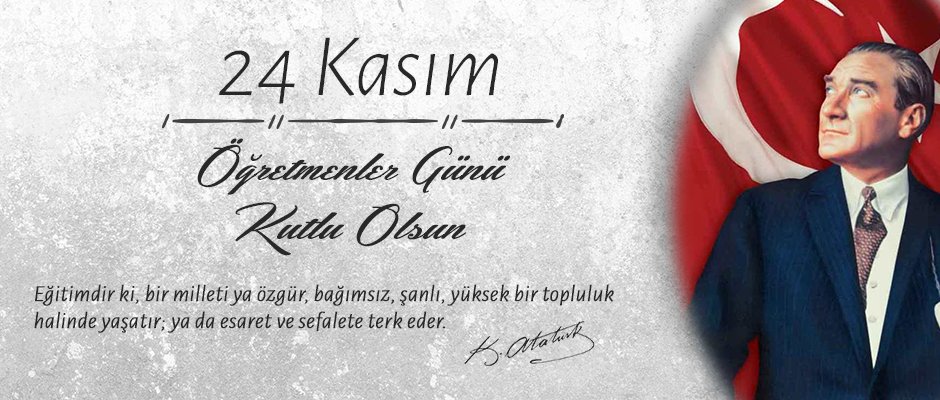 24 Kasım
Öğretmenler Günü
Kutlu Olsun
Eğitimdir ki, bir milleti ya özgür, bağımsız, şanlı, yüksek bir topluluk
halinde yaşatır; ya da esaret ve sefalete terk eder.
K. Atatürk